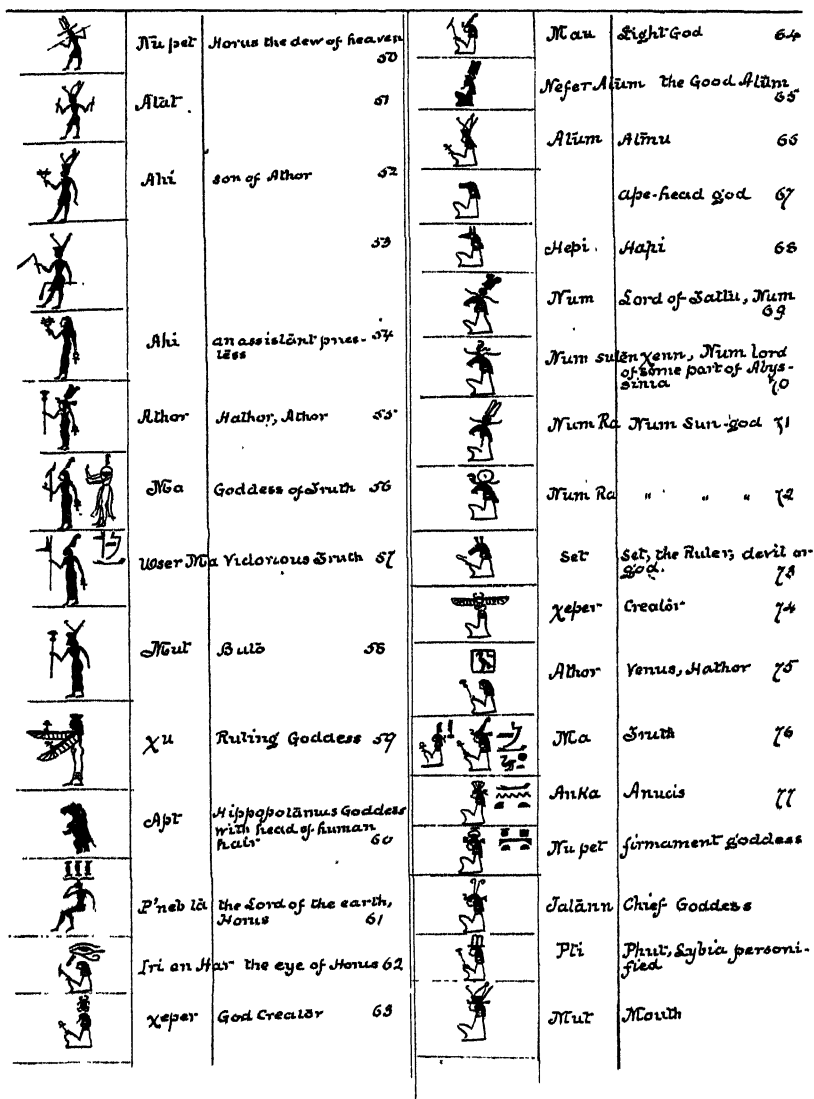 Nu pet Horus the dew of heaven
50
Atat 51
Ahi son of Athor 52
53
Ahi an assistant pries- 54
tess
Athor Hathor, Athor 55
Ma Goddess of Truth 56
User Ma Victorious Truth 57
Mut Buto 58
χu Ruling Goddess 59
Apt Hippopotamus Goddess
with head of human
hair 60
P'neb ta the Lord of the earth,
Horus 61
Iri an Har the eye of Horus 62
χeper God Creator 63
Mau Light God 64
Nefer Atum the Good Atum
65
Atum Atmu 66
ape-head god 67
Hepi. Hapi 68
Num Lord of Tattu, Num
69
Num suten χenn, Num lord
of some part of Abys-
sinia 70
Num Ra Num Sun-god 71
Num Ra " " " 72
Set Set, the Ruler, devil or
god. 73
χeper Creator 74
Athor Venus, Hathor 75
Ma Truth 76
Anka Anucis 77
Nu pet firmament goddess
Tatann Chief Goddess
Pti Phut, Lybia personi-
fied
Mut Mouth